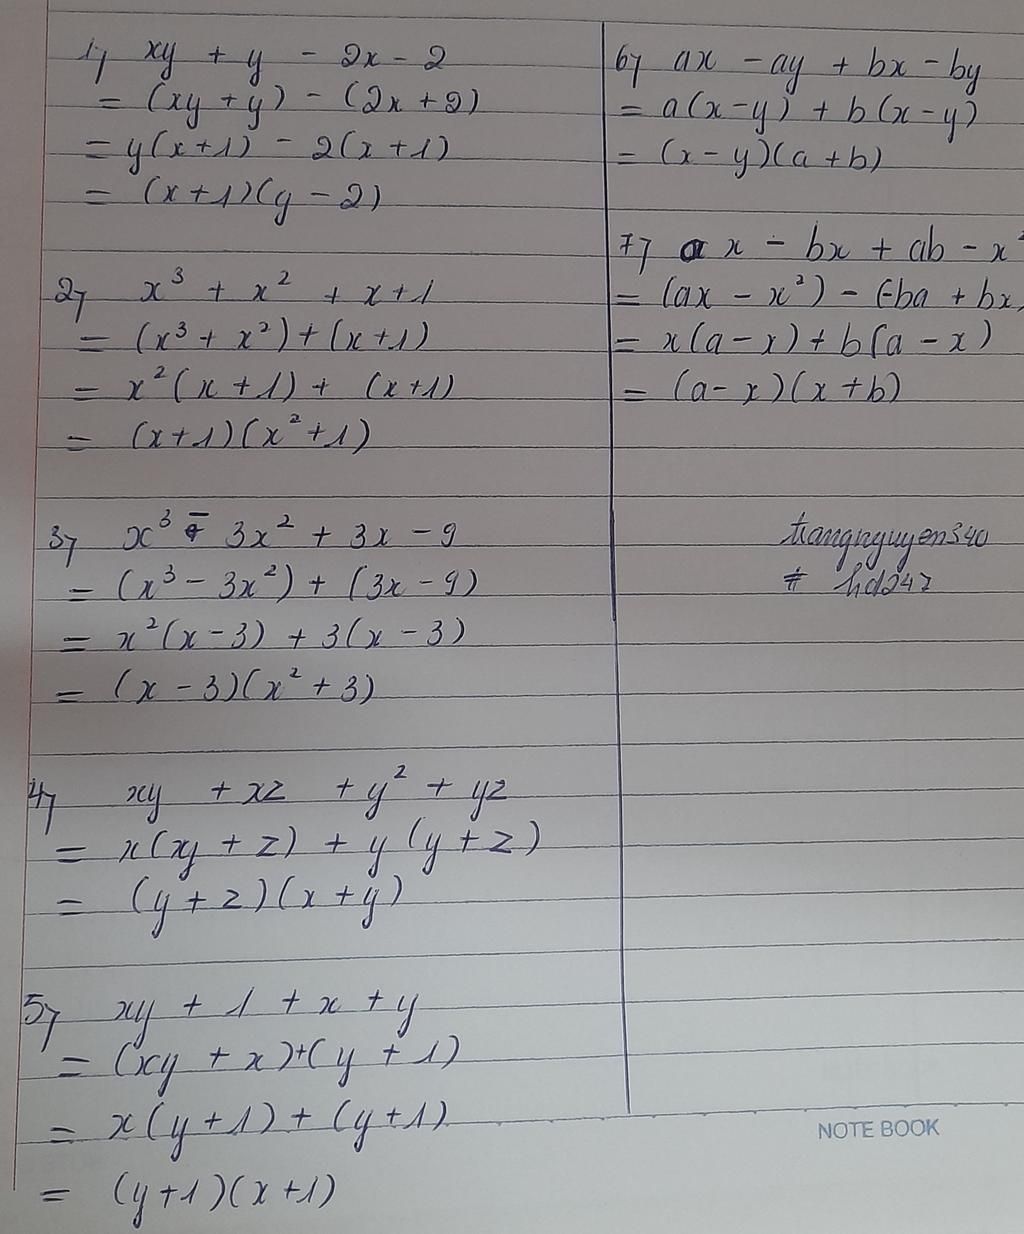 1) xy + y - 2x - 2
= (xy + y) - (2x + 2)
= y(x+1) - 2(x+1)
= (x+1)(y-2)
2) x³ + x² + x + 1
= (x³ + x²) + (x+1)
= x²(x+1) + (x+1)
= (x+1)(x²+1)
3) x³ - 3x² + 3x - 9
= (x³ - 3x²) + (3x - 9)
= x²(x-3) + 3(x-3)
= (x-3)(x²+3)
4) xy + xz + y² + yz
= x(xy + z) + y(y+z)
= (y+z)(x+y)
5) xy + 1 + x + y
= (xy + x)+(y + 1)
= x(y+1) + (y+1)
= (y+1)(x+1)
6) ax - ay + bx - by
= a(x-y) + b(x-y)
= (x-y)(a+b)
7) ax - bx + ab - x²
= (ax - x²) - (-ba + bx)
= x(a-x) + b(a-x)
= (a-x)(x+b)
trangnguyen340
# hd247
NOTE BOOK